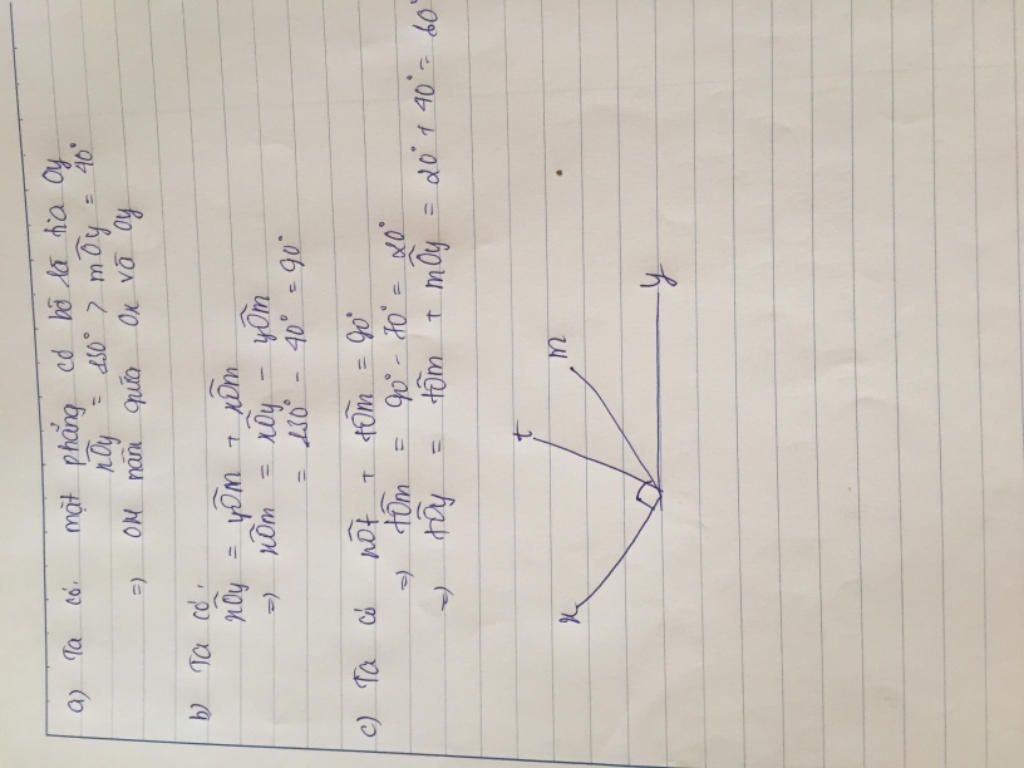 a) Ta có: mặt phẳng có bờ là tia Oy
xÔy = 130° > mÔy = 40°
=) OM nằm giữa Ox và Oy
b) Ta có:
xÔy = yÔm + xÔm
=) xÔm = xÔy - yÔm
= 130° - 40° = 90°
c) Ta có xÔt + tÔm = 90°
=) tÔm = 90° - 70° = 20°
=) tÔy = tÔm + mÔy = 20° + 40° = 60°
t
m
x
y